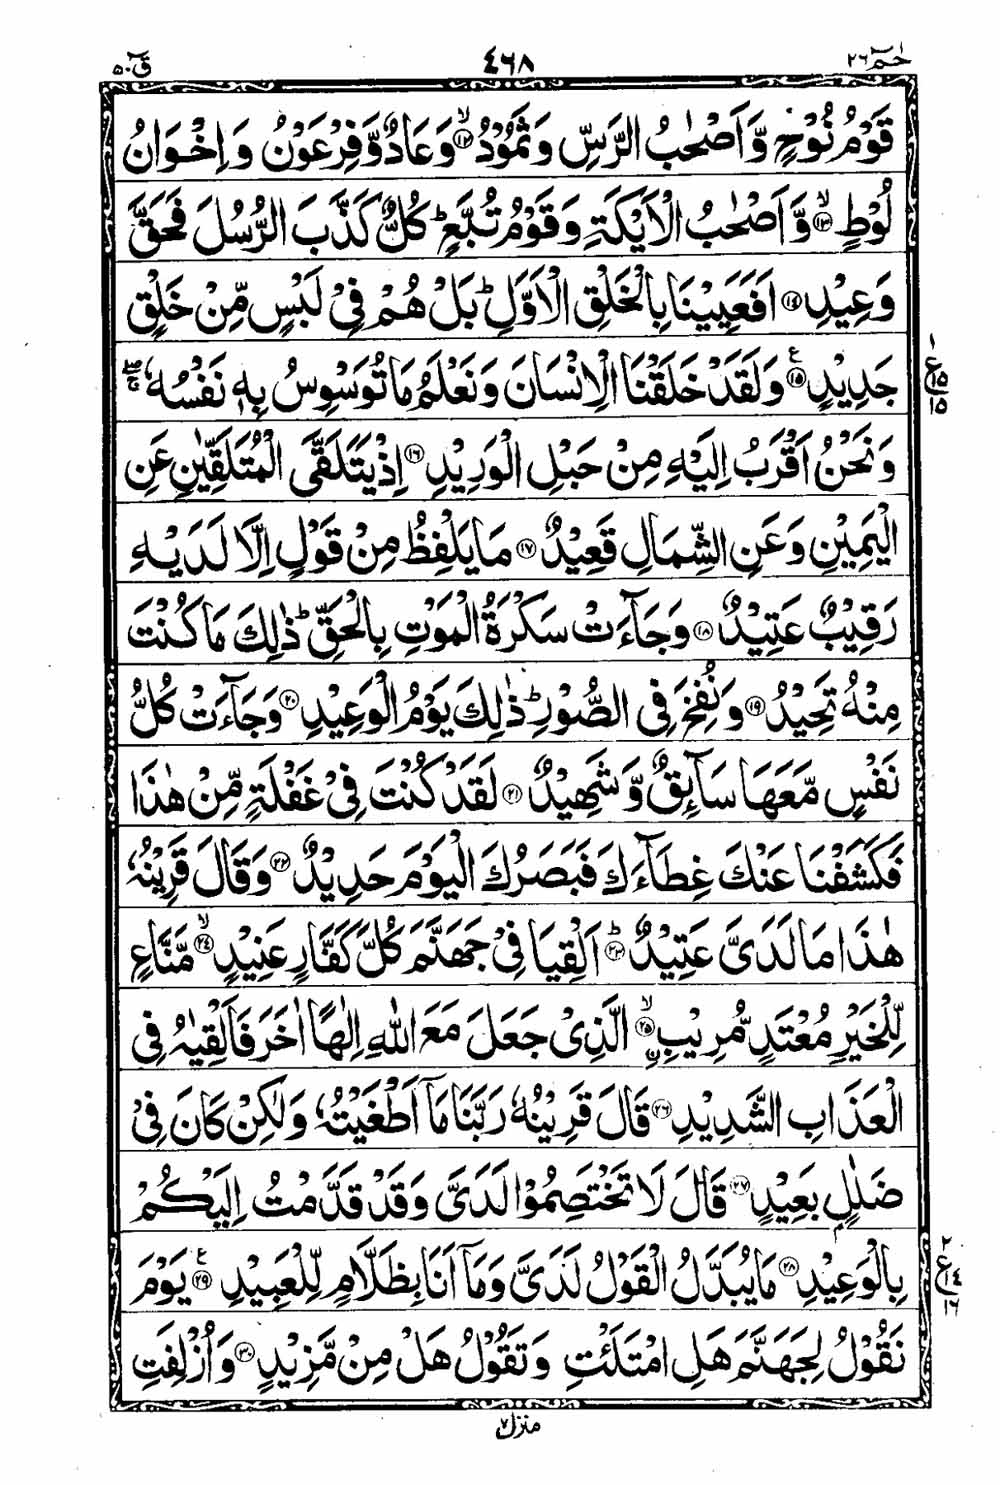 حٰمٓ ٢٦ ٤٦٨ قٓ ٥٠
قَوْمُ نُوْحٍ وَّاَصْحٰبُ الرَّسِّ وَثَمُوْدُ ۙ‏﴿۱۲﴾ وَعَادٌ وَّفِرْعَوْنُ وَاِخْوَانُ
لُوْطٍ ۙ‏﴿۱۳﴾ وَّاَصْحٰبُ الْاَيْكَةِ وَقَوْمُ تُبَّعٍ ؕ كُلٌّ كَذَّبَ الرُّسُلَ فَحَقَّ
وَعِيْدِ ﴿۱٤﴾ اَفَعَيِيْنَا بِالْخَلْقِ الْاَوَّلِ ؕ بَلْ هُمْ فِىْ لَبْسٍ مِّنْ خَلْقٍ
جَدِيْدٍ ﴿۱۵﴾ ع وَلَقَدْ خَلَقْنَا الْاِنْسَانَ وَنَعْلَمُ مَا تُوَسْوِسُ بِهٖ نَفْسُهٗ ۖۚ
۱ ع ۱۵ ۱۵
وَنَحْنُ اَقْرَبُ اِلَيْهِ مِنْ حَبْلِ الْوَرِيْدِ ﴿۱٦﴾ اِذْ يَتَلَقَّى الْمُتَلَقِّيٰنِ عَنِ
الْيَمِيْنِ وَعَنِ الشِّمَالِ قَعِيْدٌ ﴿۱۷﴾ مَا يَلْفِظُ مِنْ قَوْلٍ اِلَّا لَدَيْهِ
رَقِيْبٌ عَتِيْدٌ ﴿۱۸﴾ وَجَآءَتْ سَكْرَةُ الْمَوْتِ بِالْحَقِّ ؕ ذٰلِكَ مَا كُنْتَ
مِنْهُ تَحِيْدُ ﴿۱۹﴾ وَنُفِخَ فِى الصُّوْرِ ؕ ذٰلِكَ يَوْمُ الْوَعِيْدِ ﴿۲۰﴾ وَجَآءَتْ كُلُّ
نَفْسٍ مَّعَهَا سَآئِقٌ وَّشَهِيْدٌ ﴿۲۱﴾ لَقَدْ كُنْتَ فِىْ غَفْلَةٍ مِّنْ هٰذَا
فَكَشَفْنَا عَنْكَ غِطَآءَكَ فَبَصَرُكَ الْيَوْمَ حَدِيْدٌ ﴿۲۲﴾ وَقَالَ قَرِيْنُهٗ
هٰذَا مَا لَدَىَّ عَتِيْدٌ ؕ‏﴿۲۳﴾ اَلْقِيَا فِىْ جَهَنَّمَ كُلَّ كَفَّارٍ عَنِيْدٍ ۙ‏﴿۲٤﴾ مَّنَّاعٍ
لِّلْخَيْرِ مُعْتَدٍ مُّرِيْبِ ۙ‏﴿۲۵﴾ ۨ الَّذِىْ جَعَلَ مَعَ اللّٰهِ اِلٰهًا اٰخَرَ فَاَلْقِيٰهُ فِى
الْعَذَابِ الشَّدِيْدِ ﴿۲٦﴾ قَالَ قَرِيْنُهٗ رَبَّنَا مَآ اَطْغَيْتُهٗ وَلٰكِنْ كَانَ فِىْ
ضَلٰلٍۢ بَعِيْدٍ ﴿۲۷﴾ قَالَ لَا تَخْتَصِمُوْا لَدَىَّ وَقَدْ قَدَّمْتُ اِلَيْكُمْ
بِالْوَعِيْدِ ﴿۲۸﴾ مَا يُبَدَّلُ الْقَوْلُ لَدَىَّ وَمَآ اَنَا بِظَلَّامٍ لِّلْعَبِيْدِ ﴿۲۹﴾ ع يَوْمَ
۲ ع ۱٤ ۱٦
نَقُوْلُ لِجَهَنَّمَ هَلِ امْتَلَئْتِ وَتَقُوْلُ هَلْ مِنْ مَّزِيْدٍ ﴿۳۰﴾ وَاُزْلِفَتِ
منزل ۷